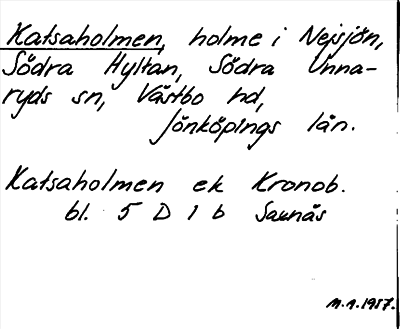 Katsaholmen, holme i Nejsjön,
Södra Hyltan, Södra Unna-
ryds sn, Västbo hd,
Jönköpings län.
Katsaholmen ek Kronob.
bl. 5 D 1 b Saxnäs
M.A. 1987.